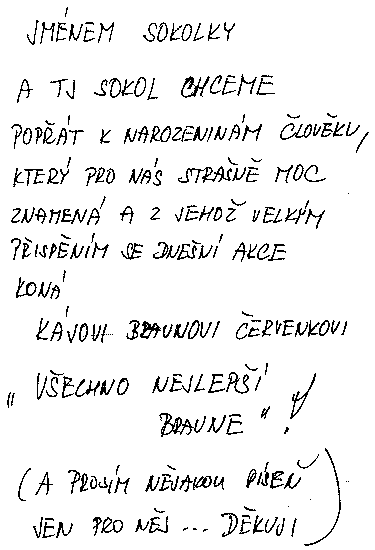 JMÉNEM SOKOLKY
A TJ SOKOL CHCEME
POPŘÁT K NAROZENINÁM ČLOVĚKU,
KTERÝ PRO NÁS STRAŠNĚ MOC
ZNAMENÁ A Z JEHOŽ VELKÝM
PŘISPĚNÍM SE DNEŠNÍ AKCE
KONÁ
KÁJOVI BRAUNOVI ČERVENKOVI
„VŠECHNO NEJLEPŠÍ
BRAUNE“!
(A PROSÍM NĚJAKOU PÍSEŇ
JEN PRO NĚJ... DĚKUJI)